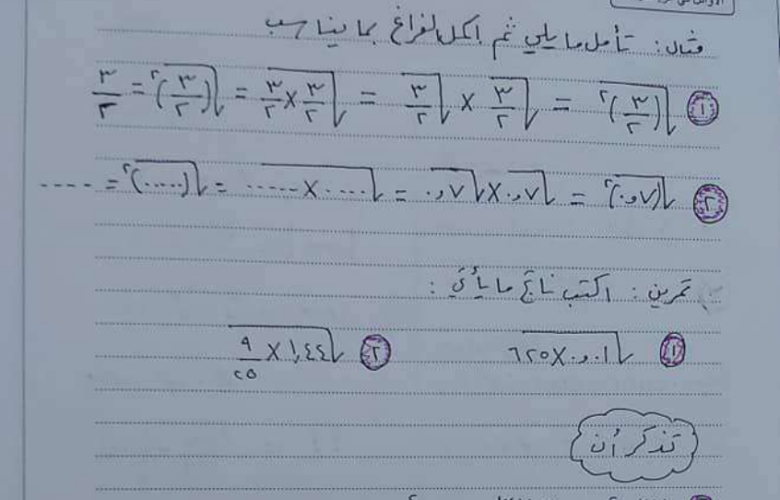 مثال: تأمل ما يلي ثم اكمل الفراغ بما يناسب
① √(٣/٢)² = √٣/٢ × √٣/٢ = √٣/٢×٣/٢ = √(٣/٢)² = ٣/٢
② √(٠,٧)² = √٠,٧×√٠,٧ = √.....×..... = √(.....)² = ....
تمرين: اكتب ناتج ما يأتي:
① √٠,٠١×٦٢٥ ② √١,٤٤×٩/٢٥
تذكر أن